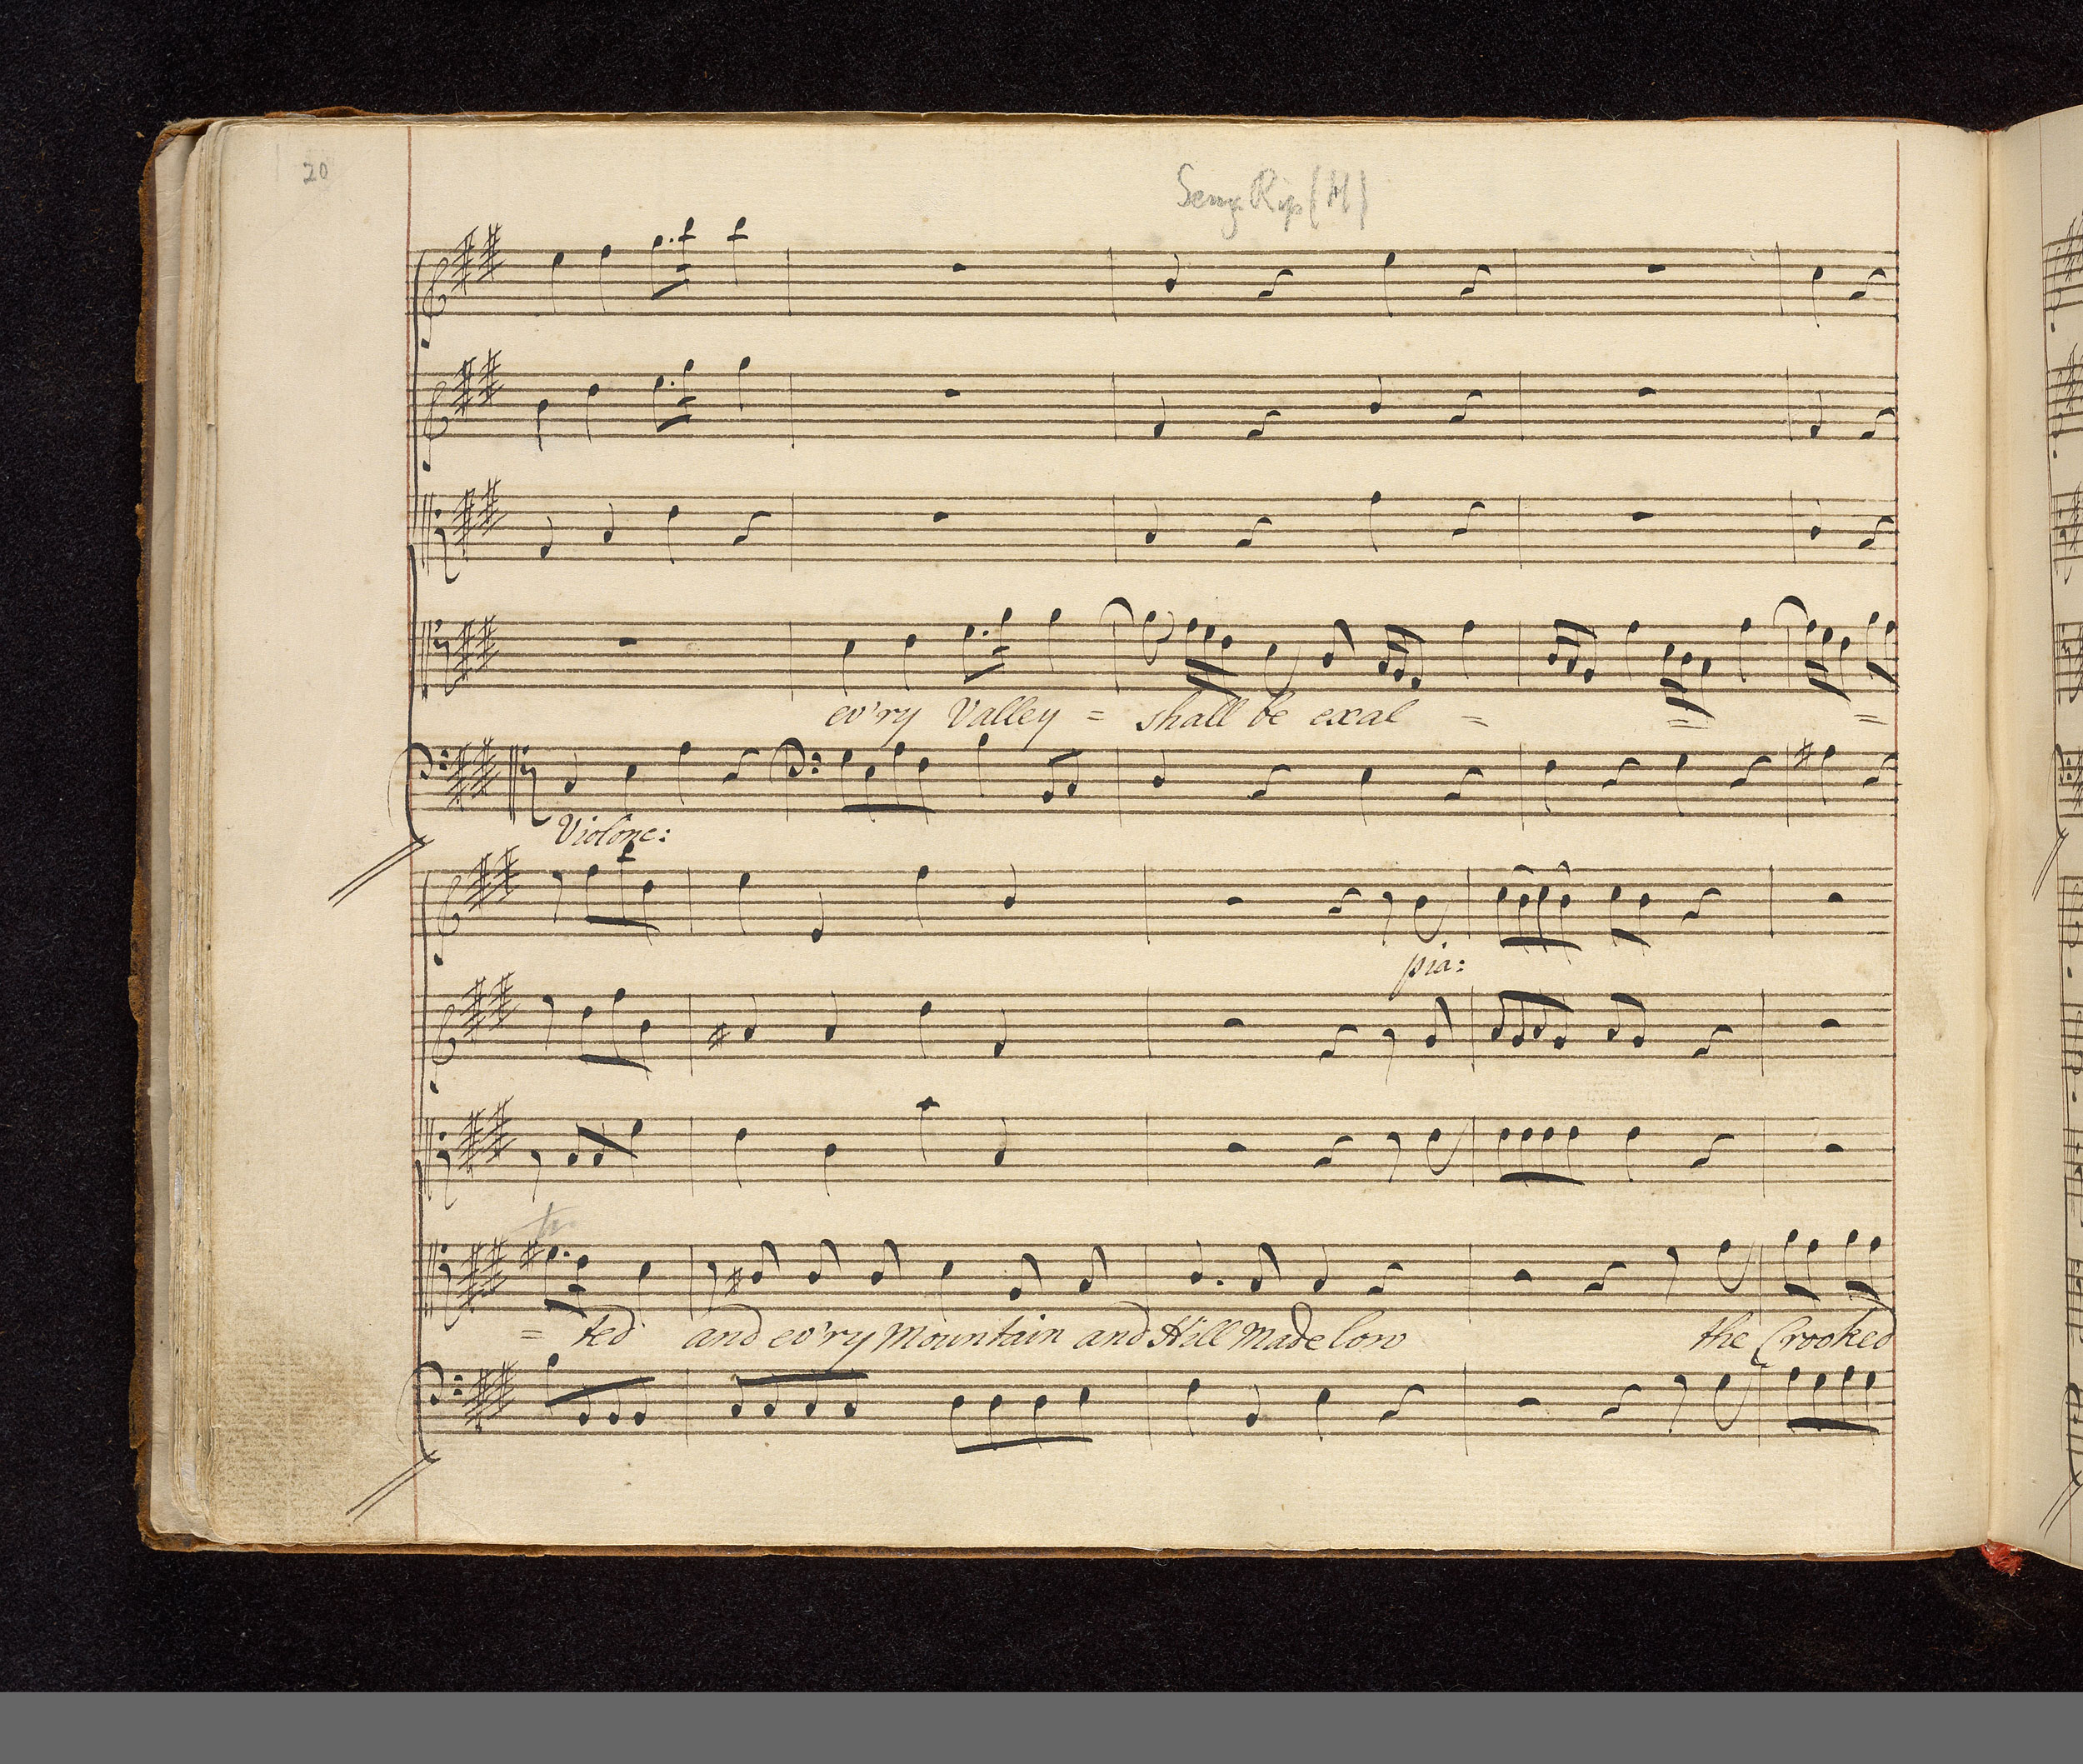 20
ev'ry Valley = shall be exal = = =
Violonc:
pia:
= ted and ev'ry Mountain and Hill Made low the Crooked